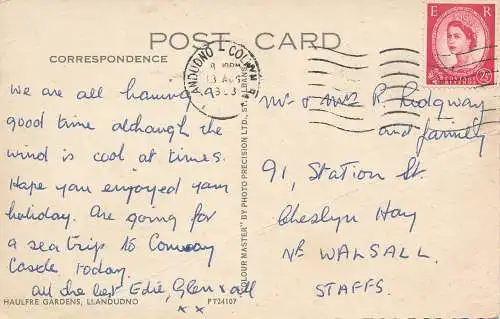 POST CARD
CORRESPONDENCE
LLANDUDNO - COLWYN B
8 30PM
13 AUG
1963
E R
We are all having a
good time although the
wind is cool at times.
Hope you enjoyed your
holiday. Are going for
a sea trip to Conway
Castle today.
All the best Edie, Glen & all
x x
HAULFRE GARDENS, LLANDUDNO
PT24107
"COLOUR MASTER" BY PHOTO PRECISION LTD., ST. ALBANS
Mr & Mrs R. Ridgway
and family
91, Station St.
Cheslyn Hay
Nr WALSALL.
STAFFS.